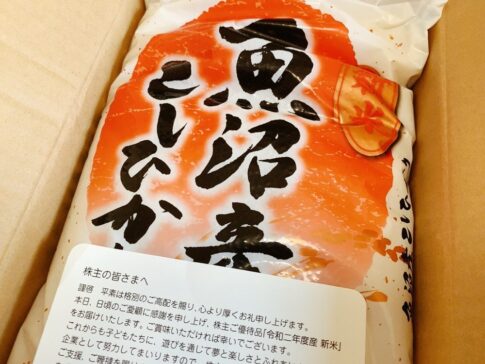 魚沼産
こしひか
株主の皆さまへ
謹啓　平素は格別のご高配を賜り、心より厚くお礼申し上げます。
本日、日頃のご愛顧に感謝を申し上げ、株主ご優待品「令和二年度産 新米」
をお届けいたします。ご賞味いただければ幸いでございます。
これからも子どもたちに、遊びを通じて夢と楽しさとふれ
企業として努力してまいりますので、
ご支援、ご鞭撻を